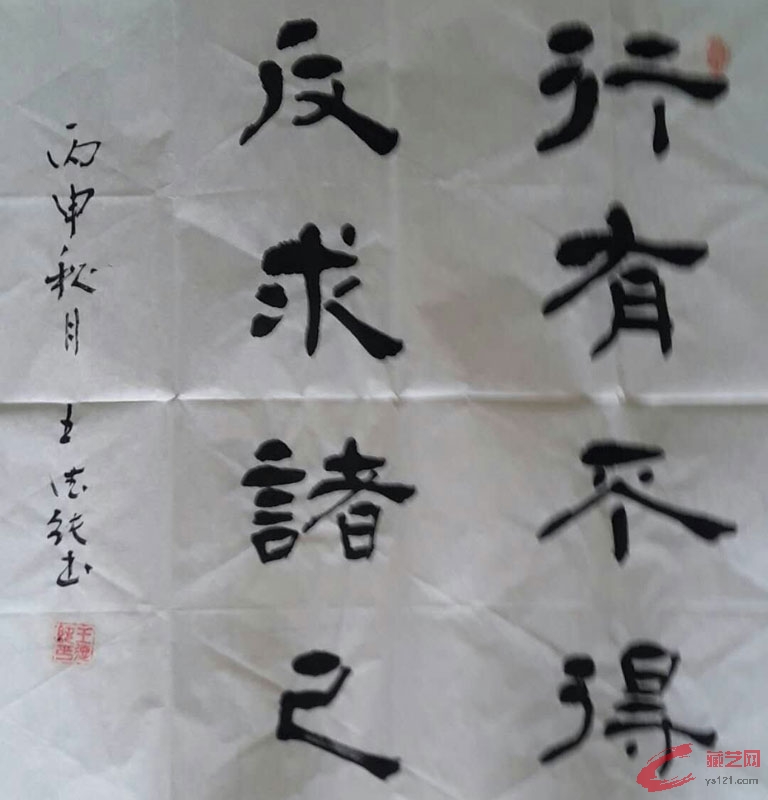 行有不得
反求諸己
丙申秋月 王德纯书
藏艺网
ys121.com